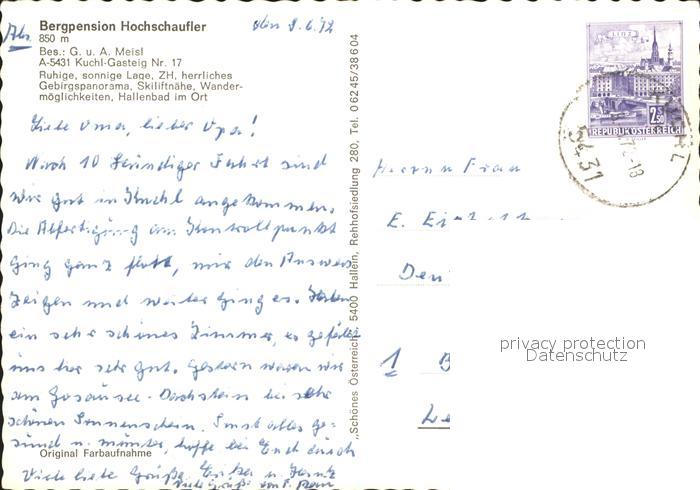 Abs.
Bergpension Hochschaufler
850 m
Bes.: G. u. A. Meisl
A-5431 Kuchl-Gasteig Nr. 17
Ruhige, sonnige Lage, ZH, herrliches
Gebirgspanorama, Skiliftnähe, Wander-
möglichkeiten, Hallenbad im Ort
den 8.6.72
Liebe Oma, lieber Opa!
Nach 10 stündiger Fahrt sind
wir gut in Kuchl angekommen.
Die Abfertigung am Kontrollpunkt
ging ganz flott, nur den Ausweis
zeigen und weiter ging es. Haben
ein sehr schönes Zimmer, es gefällt
uns hier sehr gut. Gestern waren wir
am Gosausee - Dachstein bei sehr
schönen Sonnenschein. Sonst alles ge-
sund u. munter, hoffe bei Euch auch
Viele liebe Grüße Erika u.
Viele Grüße von
Original Farbaufnahme
„Schönes Österreich" 5400 Hallein, Rehhofsiedlung 280, Tel. 0 62 45/3 86 04
LINZ
2.50
REPUBLIK ÖSTERREICH
5431
72-18
Herrn Frau
E.
1 B
privacy protection
Datenschutz